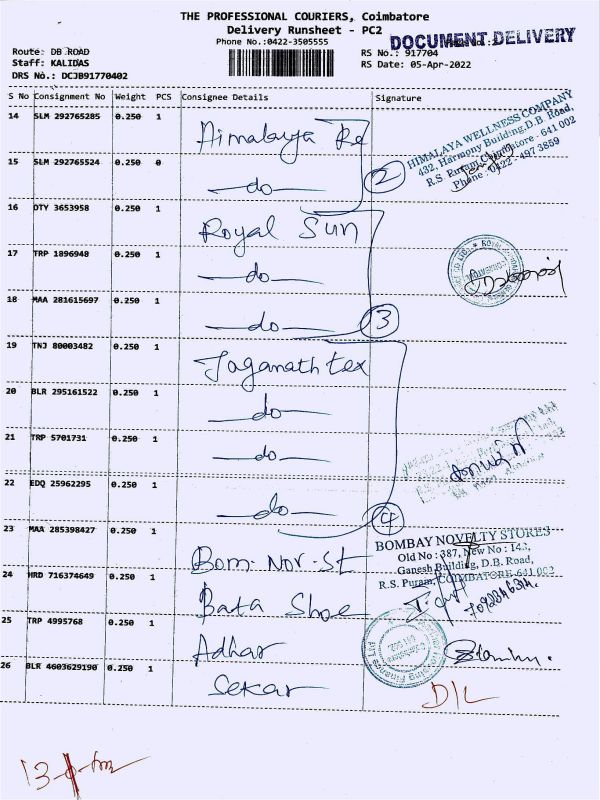 THE PROFESSIONAL COURIERS, Coimbatore
Delivery Runsheet - PC2
Phone No.:0422-3505555
DOCUMENT DELIVERY
Route: DB ROAD
Staff: KALIDAS
DRS No.: DCJB91770402
RS No.: 917704
RS Date: 05-Apr-2022
S No Consignment No Weight PCS Consignee Details Signature
14 SLM 292765285 0.250 1 Himalaya Rd
15 SLM 292765524 0.250 0 do
2
HIMALAYA WELLNESS COMPANY
432, Harmony Building, D.B. Road,
R.S. Puram, Coimbatore - 641 002
Phone : 0422 - 497 3859
16 DTY 3653958 0.250 1 Royal Sun
17 TRP 1896948 0.250 1 do
18 MAA 281615697 0.250 1 do
3
19 TNJ 80003482 0.250 1 Jaganath tex
20 BLR 295161522 0.250 1 do
21 TRP 5701731 0.250 1 do
22 EDQ 25962295 0.250 1 do
4
23 MAA 285398427 0.250 1 Bom-Nov-St
BOMBAY NOVELTY STORES
Old No : 387, New No : 143,
Ganesh Building, D.B. Road,
R.S. Puram, COIMBATORE-641 002
24 HRD 716374649 0.250 1 Bata Shoe
25 TRP 4995768 0.250 1 Adhar
26 BLR 4603629190 0.250 1 Sekar
D/L